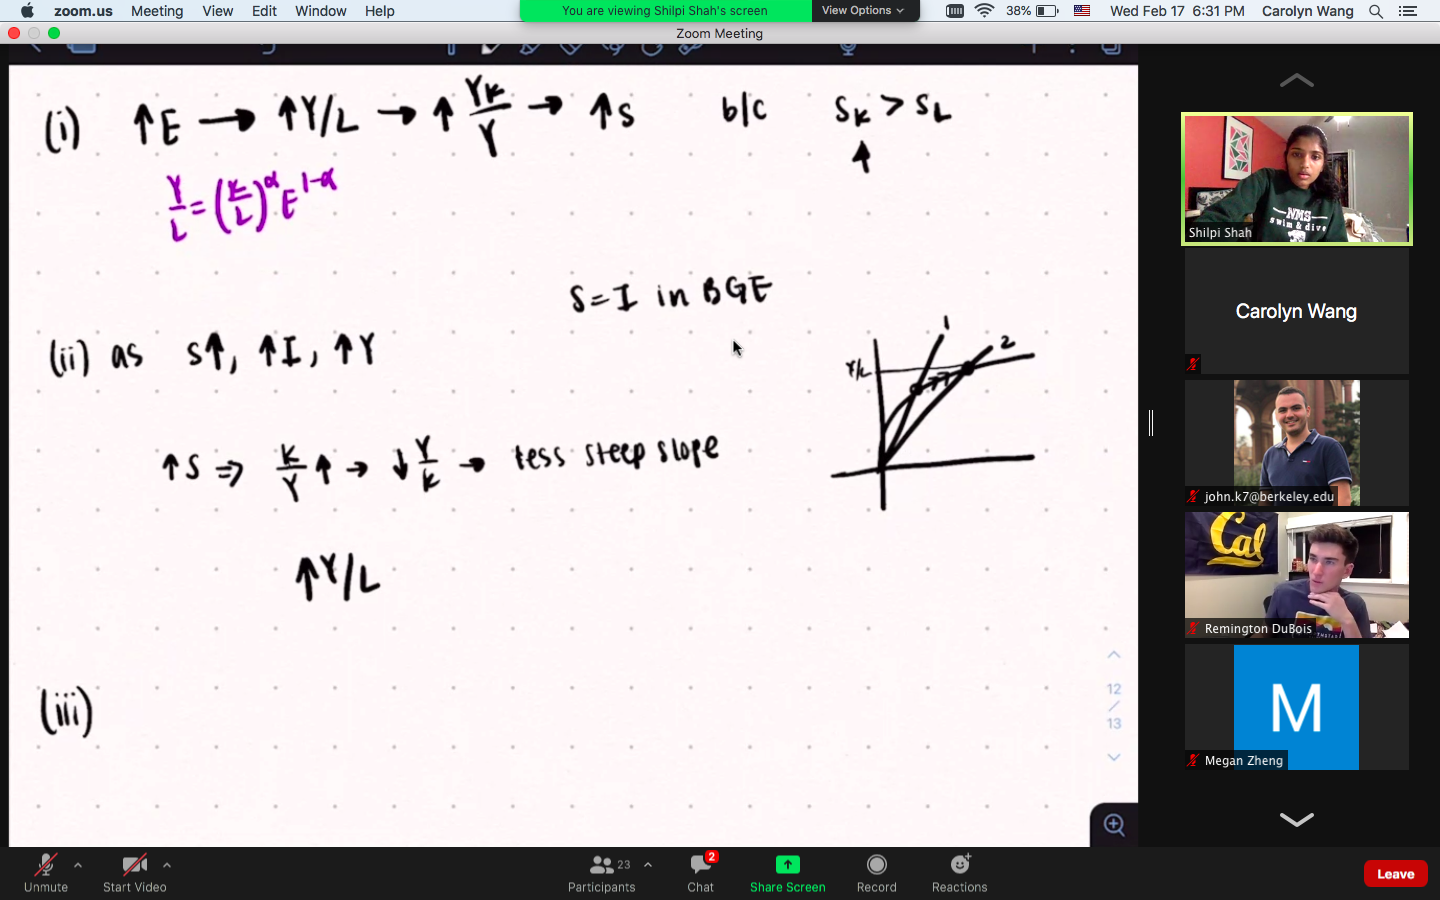 zoom.us Meeting View Edit Window Help
You are viewing Shilpi Shah's screen View Options
38% Wed Feb 17 6:31 PM Carolyn Wang
Zoom Meeting
(i) ↑E → ↑Y/L → ↑ Yk/Y → ↑S b/c SK > SL
↑
Y/L = (K/L)^α E^1-α
S = I in BGE
(ii) as S↑, ↑I, ↑Y
1
2
Y/L
↑S ⇒ K/Y ↑ → ↓ Y/K → less steep slope
↑Y/L
(iii)
12
/
13
NMS
swim & dive
Shilpi Shah
Carolyn Wang
john.k7@berkeley.edu
Cal
Remington DuBois
M
Megan Zheng
Unmute
Start Video
Participants 23
Chat 2
Share Screen
Record
Reactions
Leave